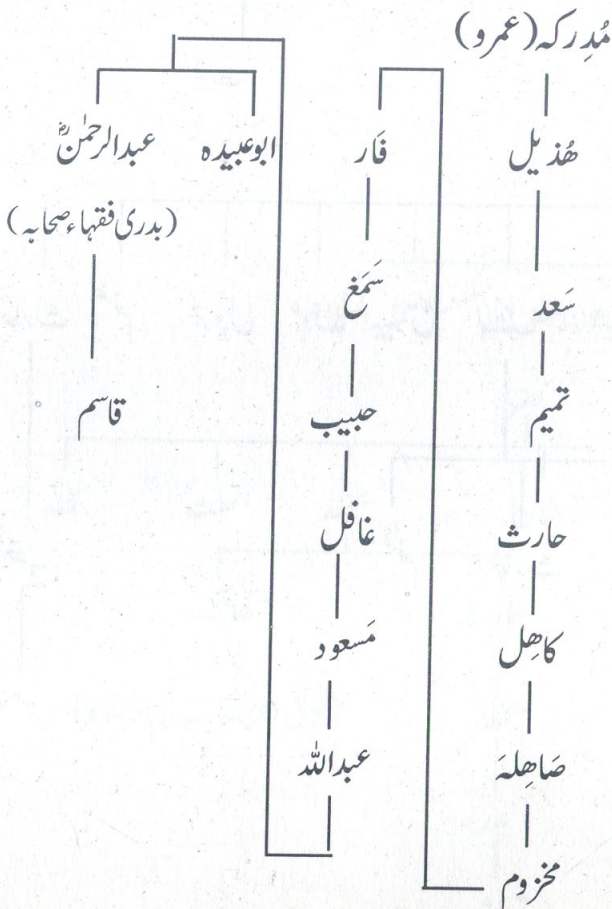 مُدرِکہ (عمرو)
ھُذیل
سَعد
تمیم
حارث
کاھِل
صَاھِلہَ
مخزوم
فَار
سَمَغ
حبیب
غافل
مَسعود
عبداللہ
ابوعبیدہ
عبدالرحمٰنؓ
(بدری فقہاء صحابہ)
قاسم